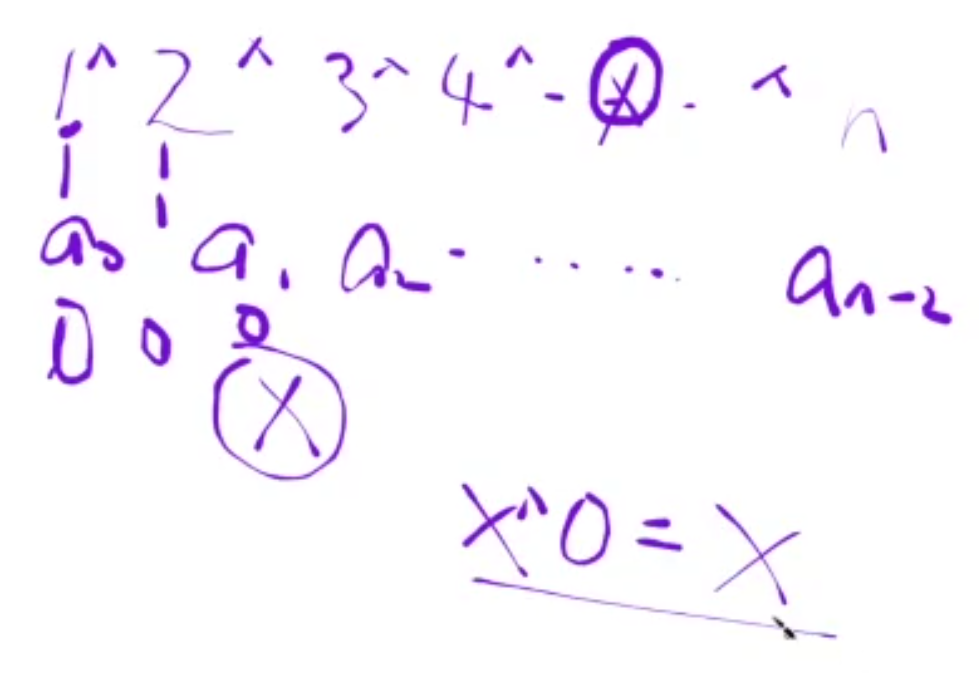 1^ 2 ^ 3^ 4^ - X - ^ n
a0 a1 a2 - ...... an-2
0 0 0
X
X^0 = X